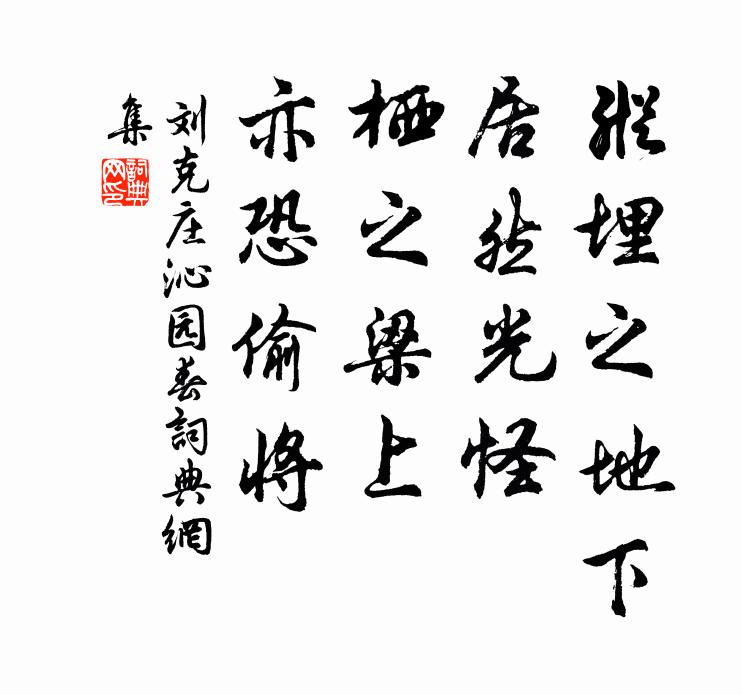 縱埋之地下
居然光怪
栖之梁上
亦恐偷将
刘克庄沁园春詞典網
集
詞典网印